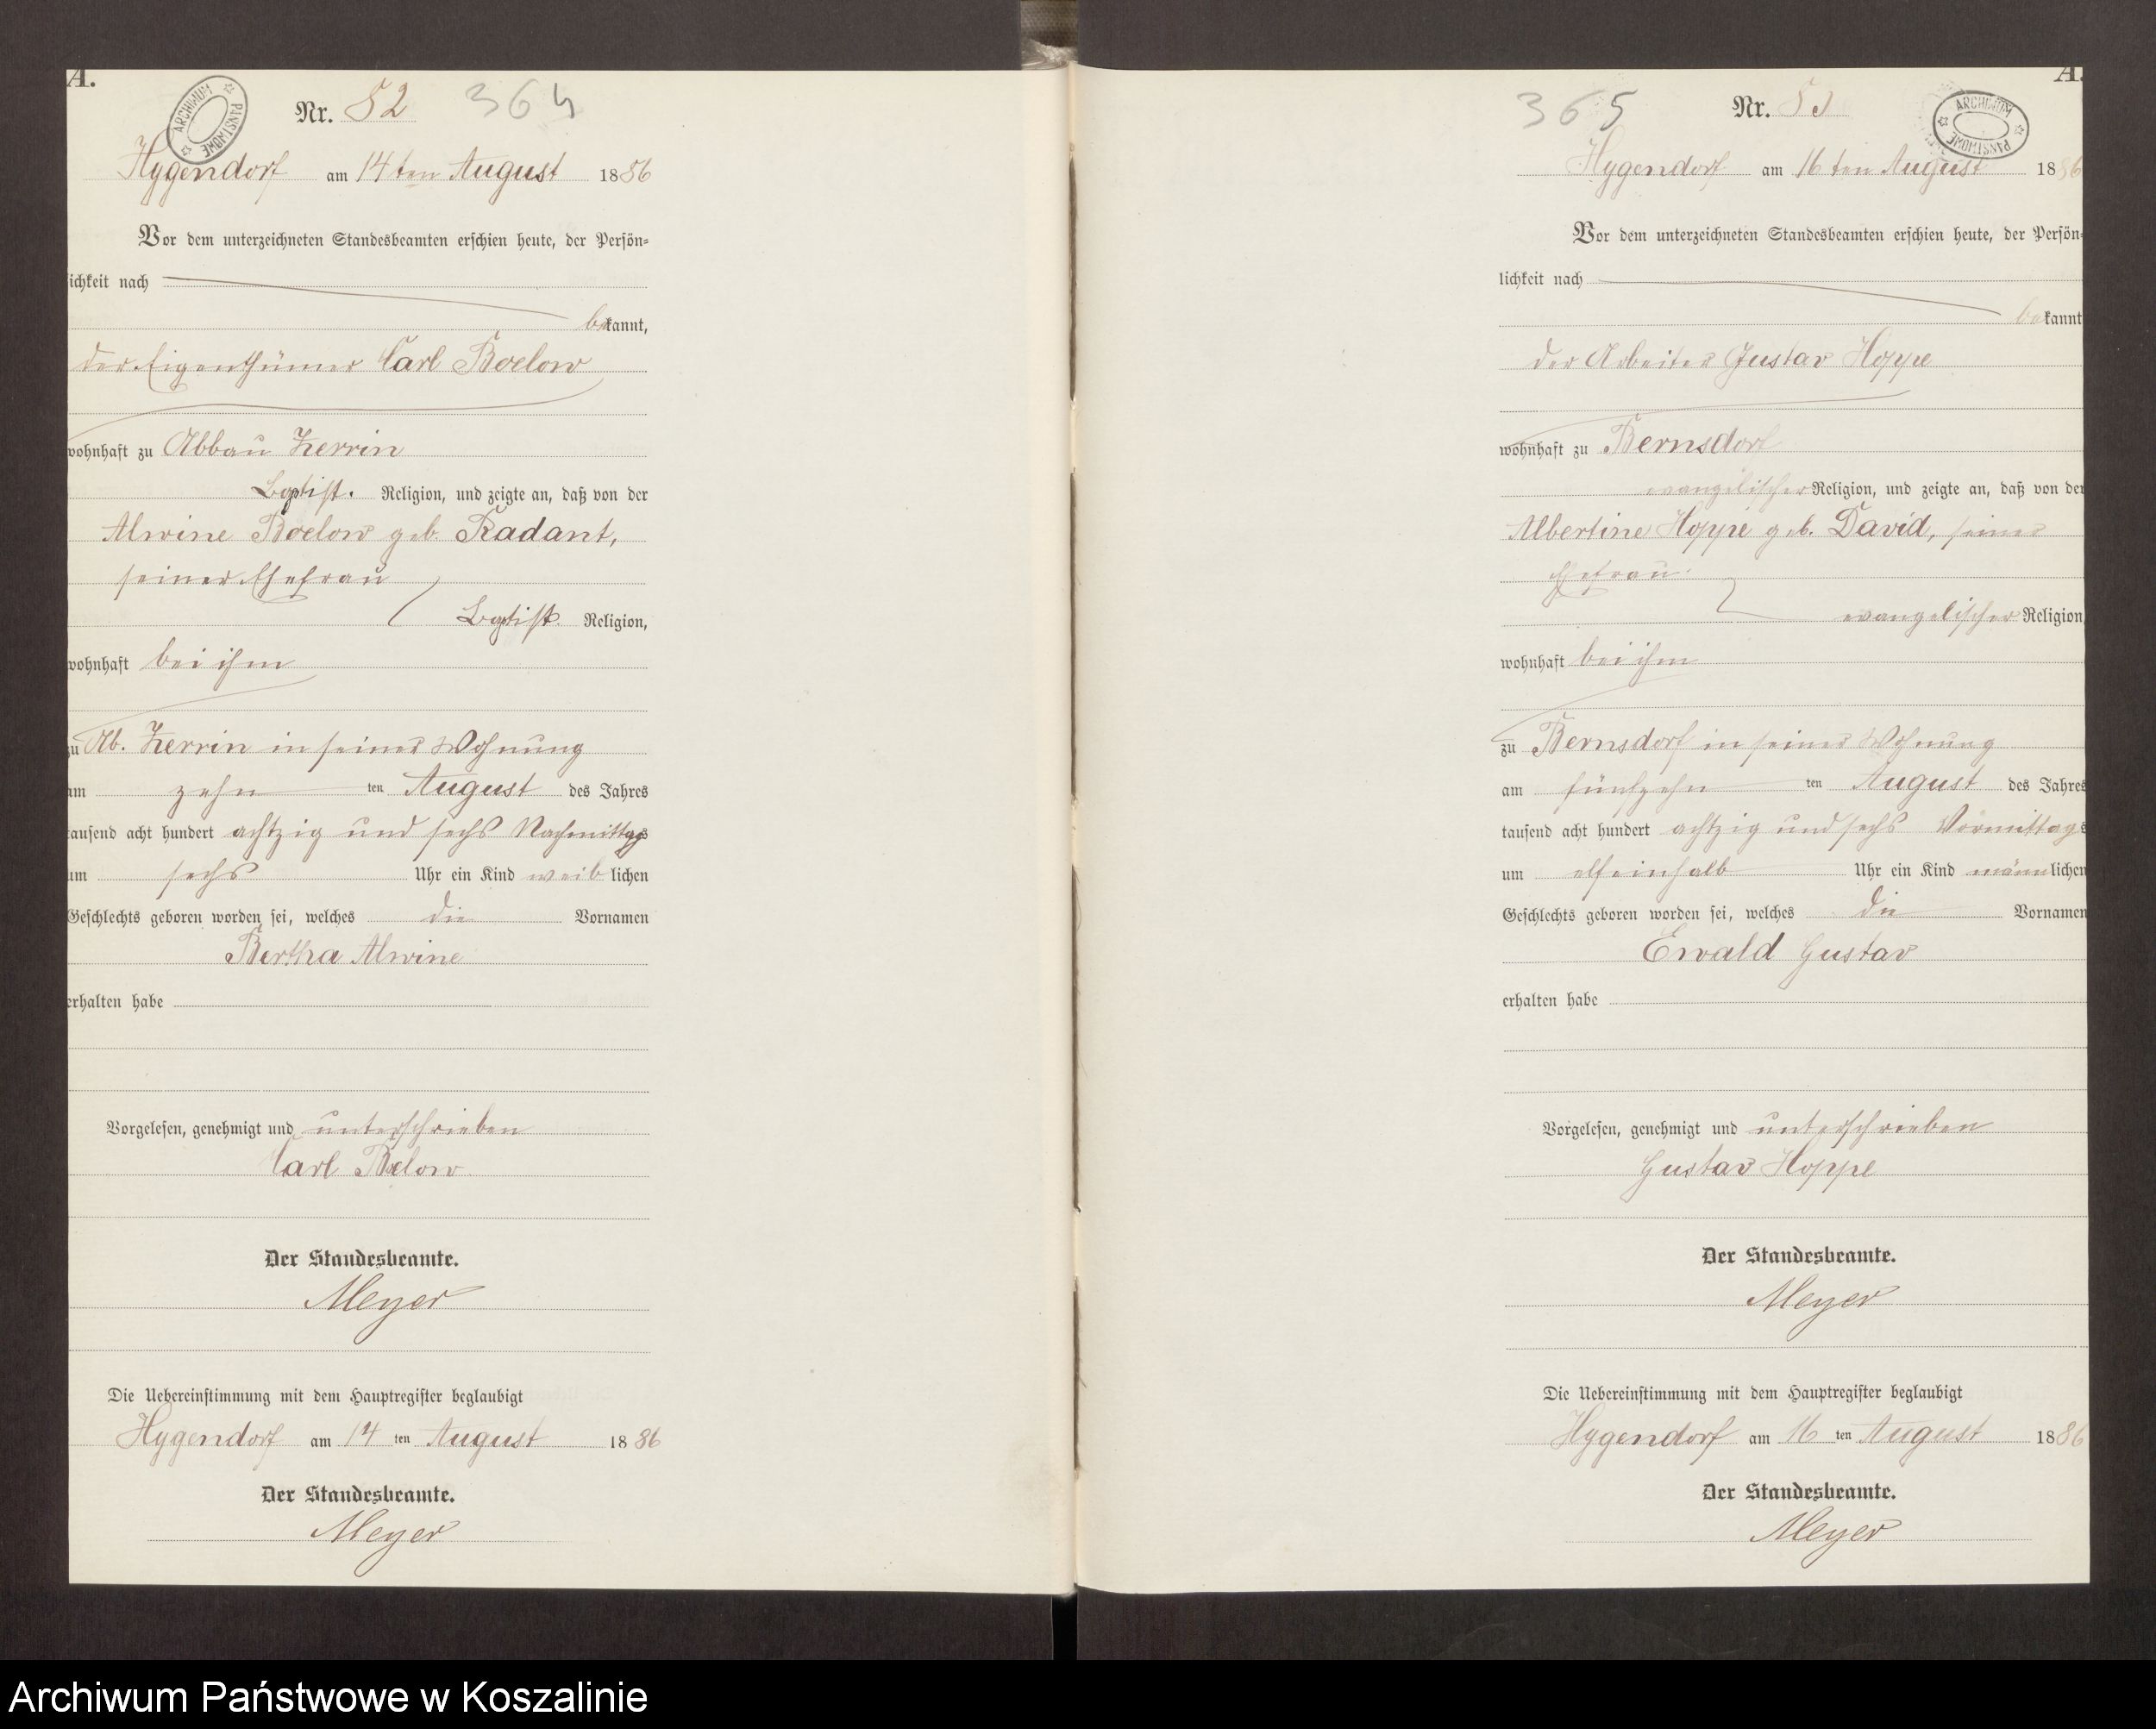 A.
ARCHIWUM PAŃSTWOWE
Nr. 52 364
Hygendorf am 14ten August 1886
Vor dem unterzeichneten Standesbeamten erschien heute, der Persön-
lichkeit nach
bekannt,
der Eigenthümer Carl Boelow
wohnhaft zu Abbau Zerrin
Baptist. Religion, und zeigte an, daß von der
Alwine Boelow geb. Radant,
seiner Ehefrau
Baptist. Religion,
wohnhaft bei ihm
zu Ab. Zerrin in seiner Wohnung
am zehn ten August des Jahres
tausend acht hundert achtzig und sechs Nachmittags
um sechs Uhr ein Kind weiblichen
Geschlechts geboren worden sei, welches die Vornamen
Bertha Alwine
erhalten habe
Vorgelesen, genehmigt und unterschrieben
Carl Boelow
Der Standesbeamte.
Meyer
Die Uebereinstimmung mit dem Hauptregister beglaubigt
Hygendorf am 14 ten August 1886
Der Standesbeamte.
Meyer
A.
ARCHIWUM PAŃSTWOWE
365 Nr. 53
Hygendorf am 16ten August 1886
Vor dem unterzeichneten Standesbeamten erschien heute, der Persön-
lichkeit nach
bekannt
der Arbeiter Gustav Hoppe
wohnhaft zu Bernsdorf
evangelischer Religion, und zeigte an, daß von der
Albertine Hoppe geb. David, seiner
Ehefrau
evangelischer Religion,
wohnhaft bei ihm
zu Bernsdorf in seiner Wohnung
am fünfzehn ten August des Jahres
tausend acht hundert achtzig und sechs Vormittags
um elfeinhalb Uhr ein Kind männlichen
Geschlechts geboren worden sei, welches die Vornamen
Ewald Gustav
erhalten habe
Vorgelesen, genehmigt und unterschrieben
Gustav Hoppe
Der Standesbeamte.
Meyer
Die Uebereinstimmung mit dem Hauptregister beglaubigt
Hygendorf am 16 ten August 1886
Der Standesbeamte.
Meyer
Archiwum Państwowe w Koszalinie